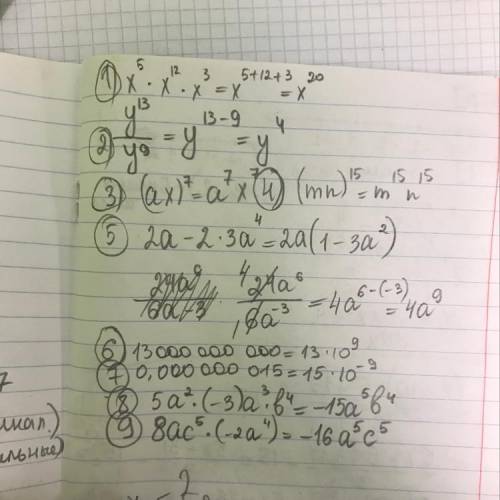 ① x⁵ · x¹² · x³ = x⁵⁺¹²⁺³ = x²⁰
② y¹³/y⁹ = y¹³⁻⁹ = y⁴
③ (ax)⁷ = a⁷x⁷ ④ (mn)¹⁵ = m¹⁵n¹⁵
⑤ 2a - 2 · 3a⁴ = 2a(1 - 3a²)
4 24a⁶/1 6a⁻³ = 4a⁶⁻⁽⁻³⁾ = 4a⁹
⑥ 13 000 000 000 = 13 · 10⁹
⑦ 0,000 000 015 = 15 · 10⁻⁹
⑧ 5a² · (-3)a³ · b⁴ = -15a⁵b⁴
⑨ 8ac⁵ · (-2a⁴) = -16a⁵c⁵